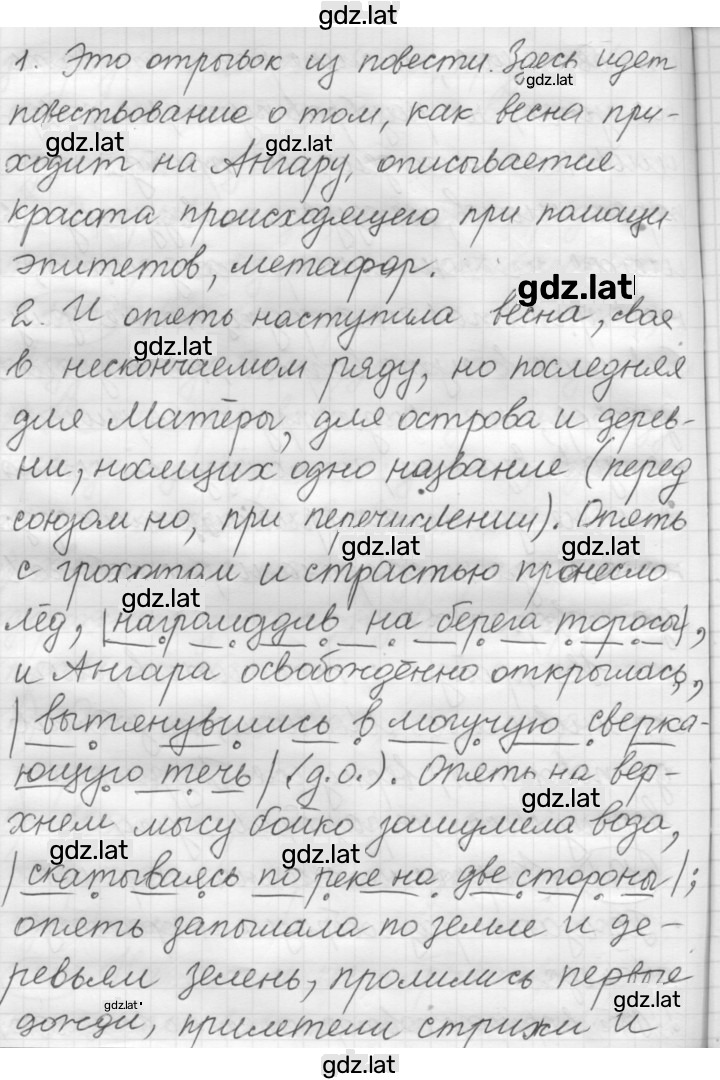 gdz.lat
1. Это отрывок из повести. Здесь идет
gdz.lat
повествование о том, как весна при-
gdz.lat gdz.lat
ходит на Ангару, описывается
красота происходящего при помощи
эпитетов, метафор.
gdz.lat
2. И опять наступила весна, своя
gdz.lat
в нескончаемом ряду, но последняя
для Матёры, для острова и дерев-
ни, носящих одно название (перед
союзом но, при перечислении). Опять
gdz.lat gdz.lat
с грохотом и страстью пронесло
gdz.lat
лёд, |нагромоздив на берега торосы|,
и Ангара освобождённо открылась,
|вытянувшись в могучую сверка-
ющую течь| (д.о.). Опять на вер-
gdz.lat
хнем мысу бойко зашумела вода,
gdz.lat gdz.lat
|скатываясь по реке на две стороны|;
опять запылала по земле и де-
ревьям зелень, пролились первые
gdz.lat gdz.lat
дожди, прилетели стрижи и
gdz.lat